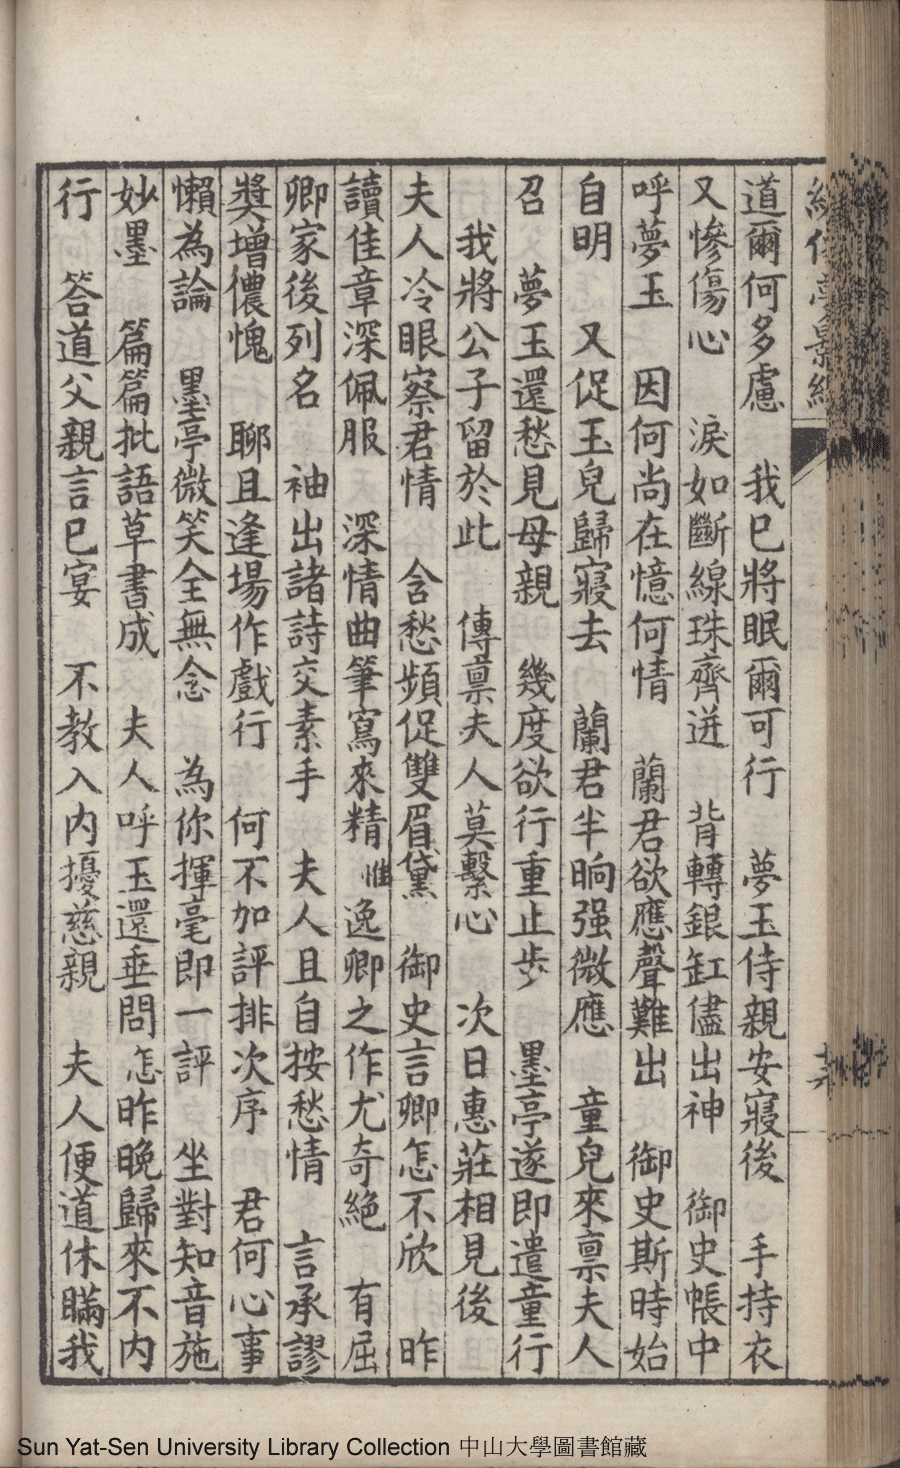 道爾何多慮　我巳將眠爾可行　夢玉侍親安寢後　手持衣
又慘傷心　淚如斷線珠齊迸　背轉銀缸儘出神　御史帳中
呼夢玉　因何尚在憶何情　蘭君欲應聲難出　御史斯時始
自明　又促玉兒歸寢去　蘭君半晌强微應　童兒來禀夫人
召　夢玉還愁見母親　幾度欲行重止步　墨亭遂即遣童行
我將公子留於此　傳禀夫人莫繫心　次日惠莊相見後
夫人冷眼察君情　含愁頻促雙眉黛　御史言卿怎不欣　昨
讀佳章深佩服　深情曲筆寫來精　惟逸卿之作尤奇絕　有屈
卿家後列名　袖出諸詩交素手　夫人且自按愁情　言承謬
獎增儂愧　聊且逢場作戲行　何不加評排次序　君何心事
懶為論　墨亭微笑全無念　為你揮毫即一評　坐對知音施
妙墨　篇篇批語草書成　夫人呼玉還垂問　怎昨晚歸來不内
行　答道父親言巳宴　不教入内擾慈親　夫人便道休瞞我
Sun Yat-Sen University Library Collection 中山大學圖書館藏